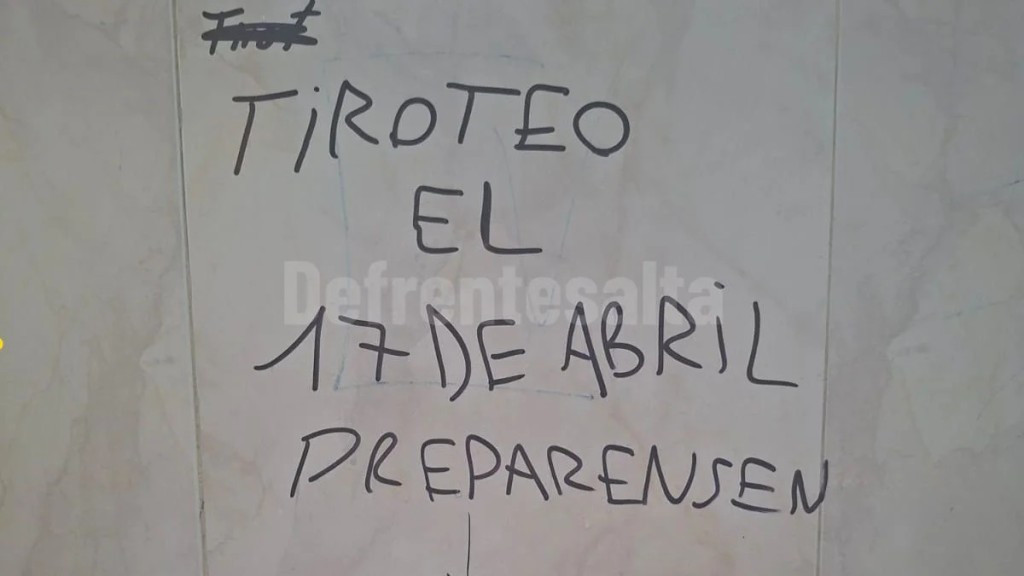 Tirot
TiROTEO
EL
Defrentesalta
17 DE ABRiL
PREPARENSEN